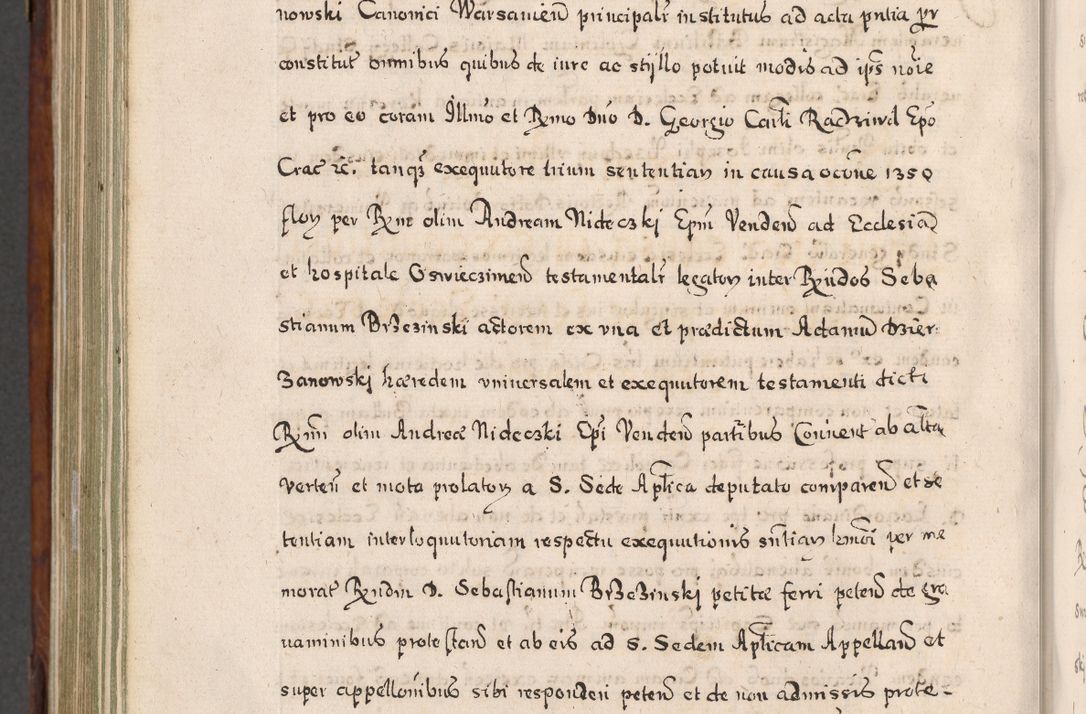 nowski Canonici Warsavien principalr institutus ad acta pntia pr
constitut omnibus quibus de iure ac styllo potuit modis ad ips noie
et pro eo coram Illmo et Rmo Dno D. Georgio Carli Radziwil Epo
Crac rc. tanq exequutore trium sententiar in causa occne 1350
flor per Rmt olim Andream Nideczkj Epm Venden ad Ecclesia
et hospitale Oswieczimen testamentalr legator inter Rndos Seba
stianum Brzezinski actorem ex vna et prædictum Adamu Dzier:
zanowskj hæredem vniuersalem et exequutorem testamenti dicti
Rmi olim Andreæ Nideczki Epi Venden partibus Conuent ab alta
verten et mota prolator a S. Sede Aplica deputato comparen et se
tentiam interloquutoriam respectu exequutionis sntiar hmoi per me
morat Rndm D. Sebastianum Brzezinskj petitæ ferri peten de gra
uaminibus protestan et ab eis ad S. Sedem Aplicam Appellan et
super appellonibus sibi responderi peten et de non admissis prote-